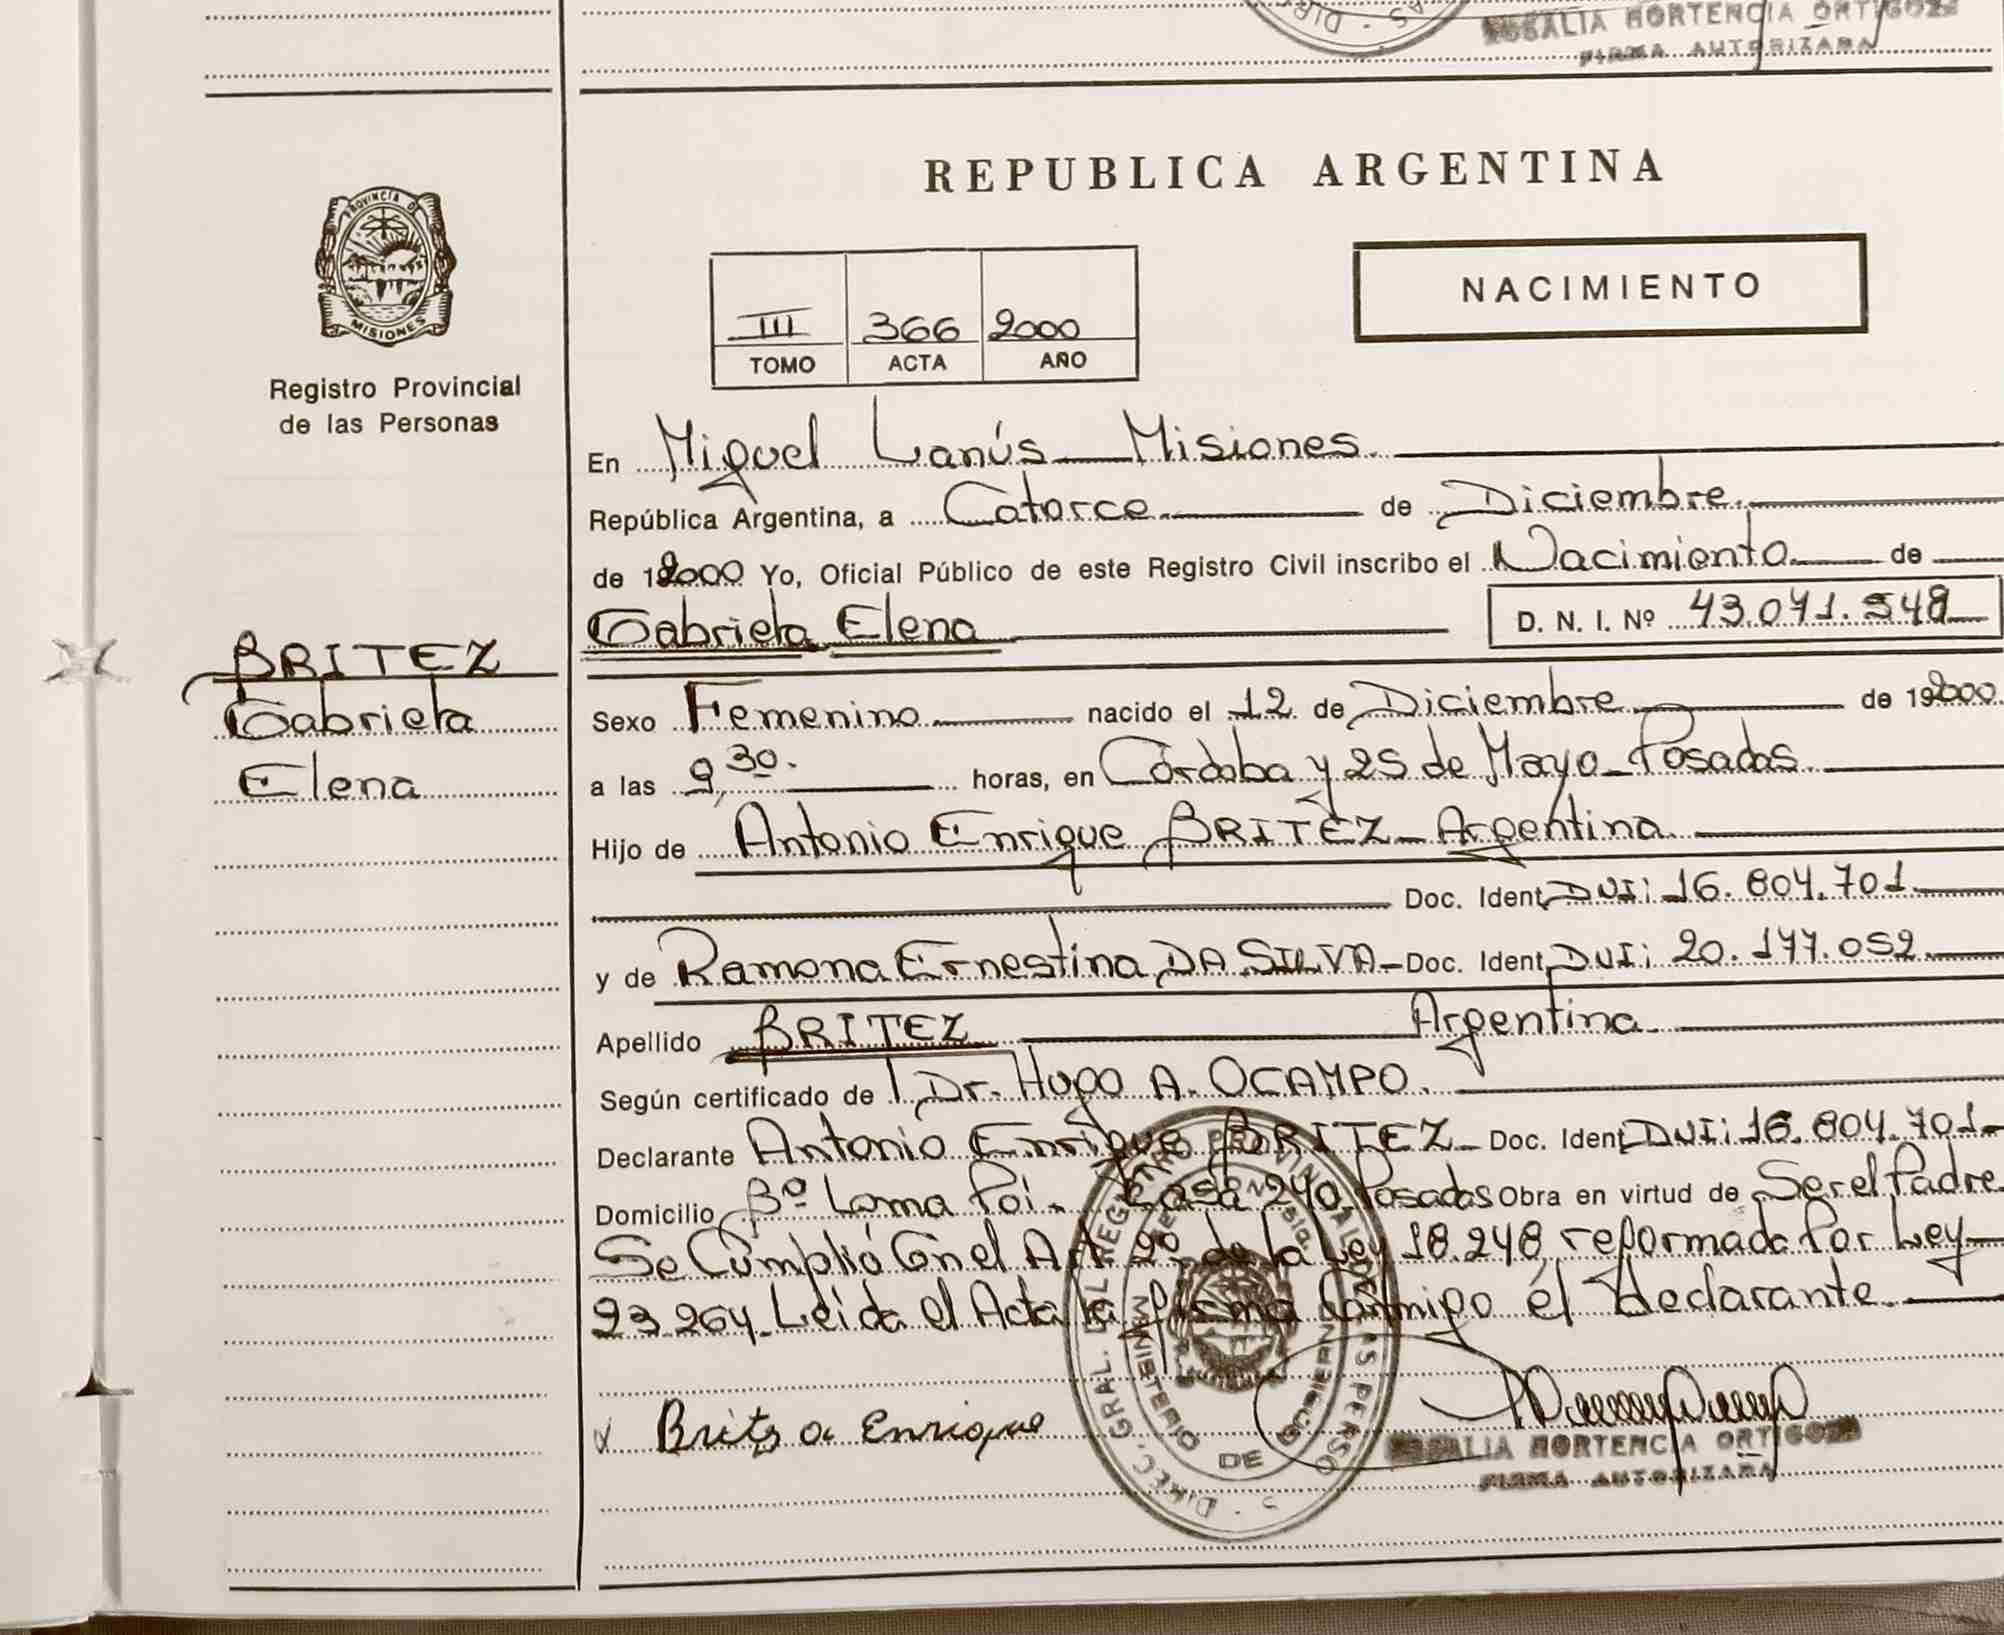 ROSALIA HORTENCIA ORTIGOZA
FIRMA AUTORIZADA
REPUBLICA ARGENTINA
PROVINCIA DE
MISIONES
Registro Provincial
de las Personas
NACIMIENTO
III 366 2000
TOMO ACTA AÑO
En Miguel Lanús Misiones
República Argentina, a Catorce de Diciembre
de 2000 Yo, Oficial Público de este Registro Civil inscribo el Nacimiento de
Gabriela Elena D. N. I. Nº 43.071.548
BRITEZ
Gabriela
Elena
Sexo Femenino nacido el 12 de Diciembre de 192000
a las 9,30. horas, en Córdoba y 25 de Mayo - Posadas
Hijo de Antonio Enrique BRITEZ - Argentina
Doc. Ident. DNI: 16.804.701
y de Ramona Ernestina DA SILVA - Doc. Ident. DNI: 20.177.052
Apellido BRITEZ Argentina
Según certificado de Dr. Hugo A. OCAMPO.
Declarante Antonio Enrique BRITEZ - Doc. Ident. DNI: 16.804.701
Domicilio Bº Loma Poi. Casa 240. Posadas Obra en virtud de Ser el Padre
Se Cumplió Con el Art 2º de la Ley 18.248, reformada Por Ley
23.264. Leída el Acta la firma Conmigo él Declarante.
Britez a Enrique
ROSALIA HORTENCIA ORTIGOZA
FIRMA AUTORIZADA